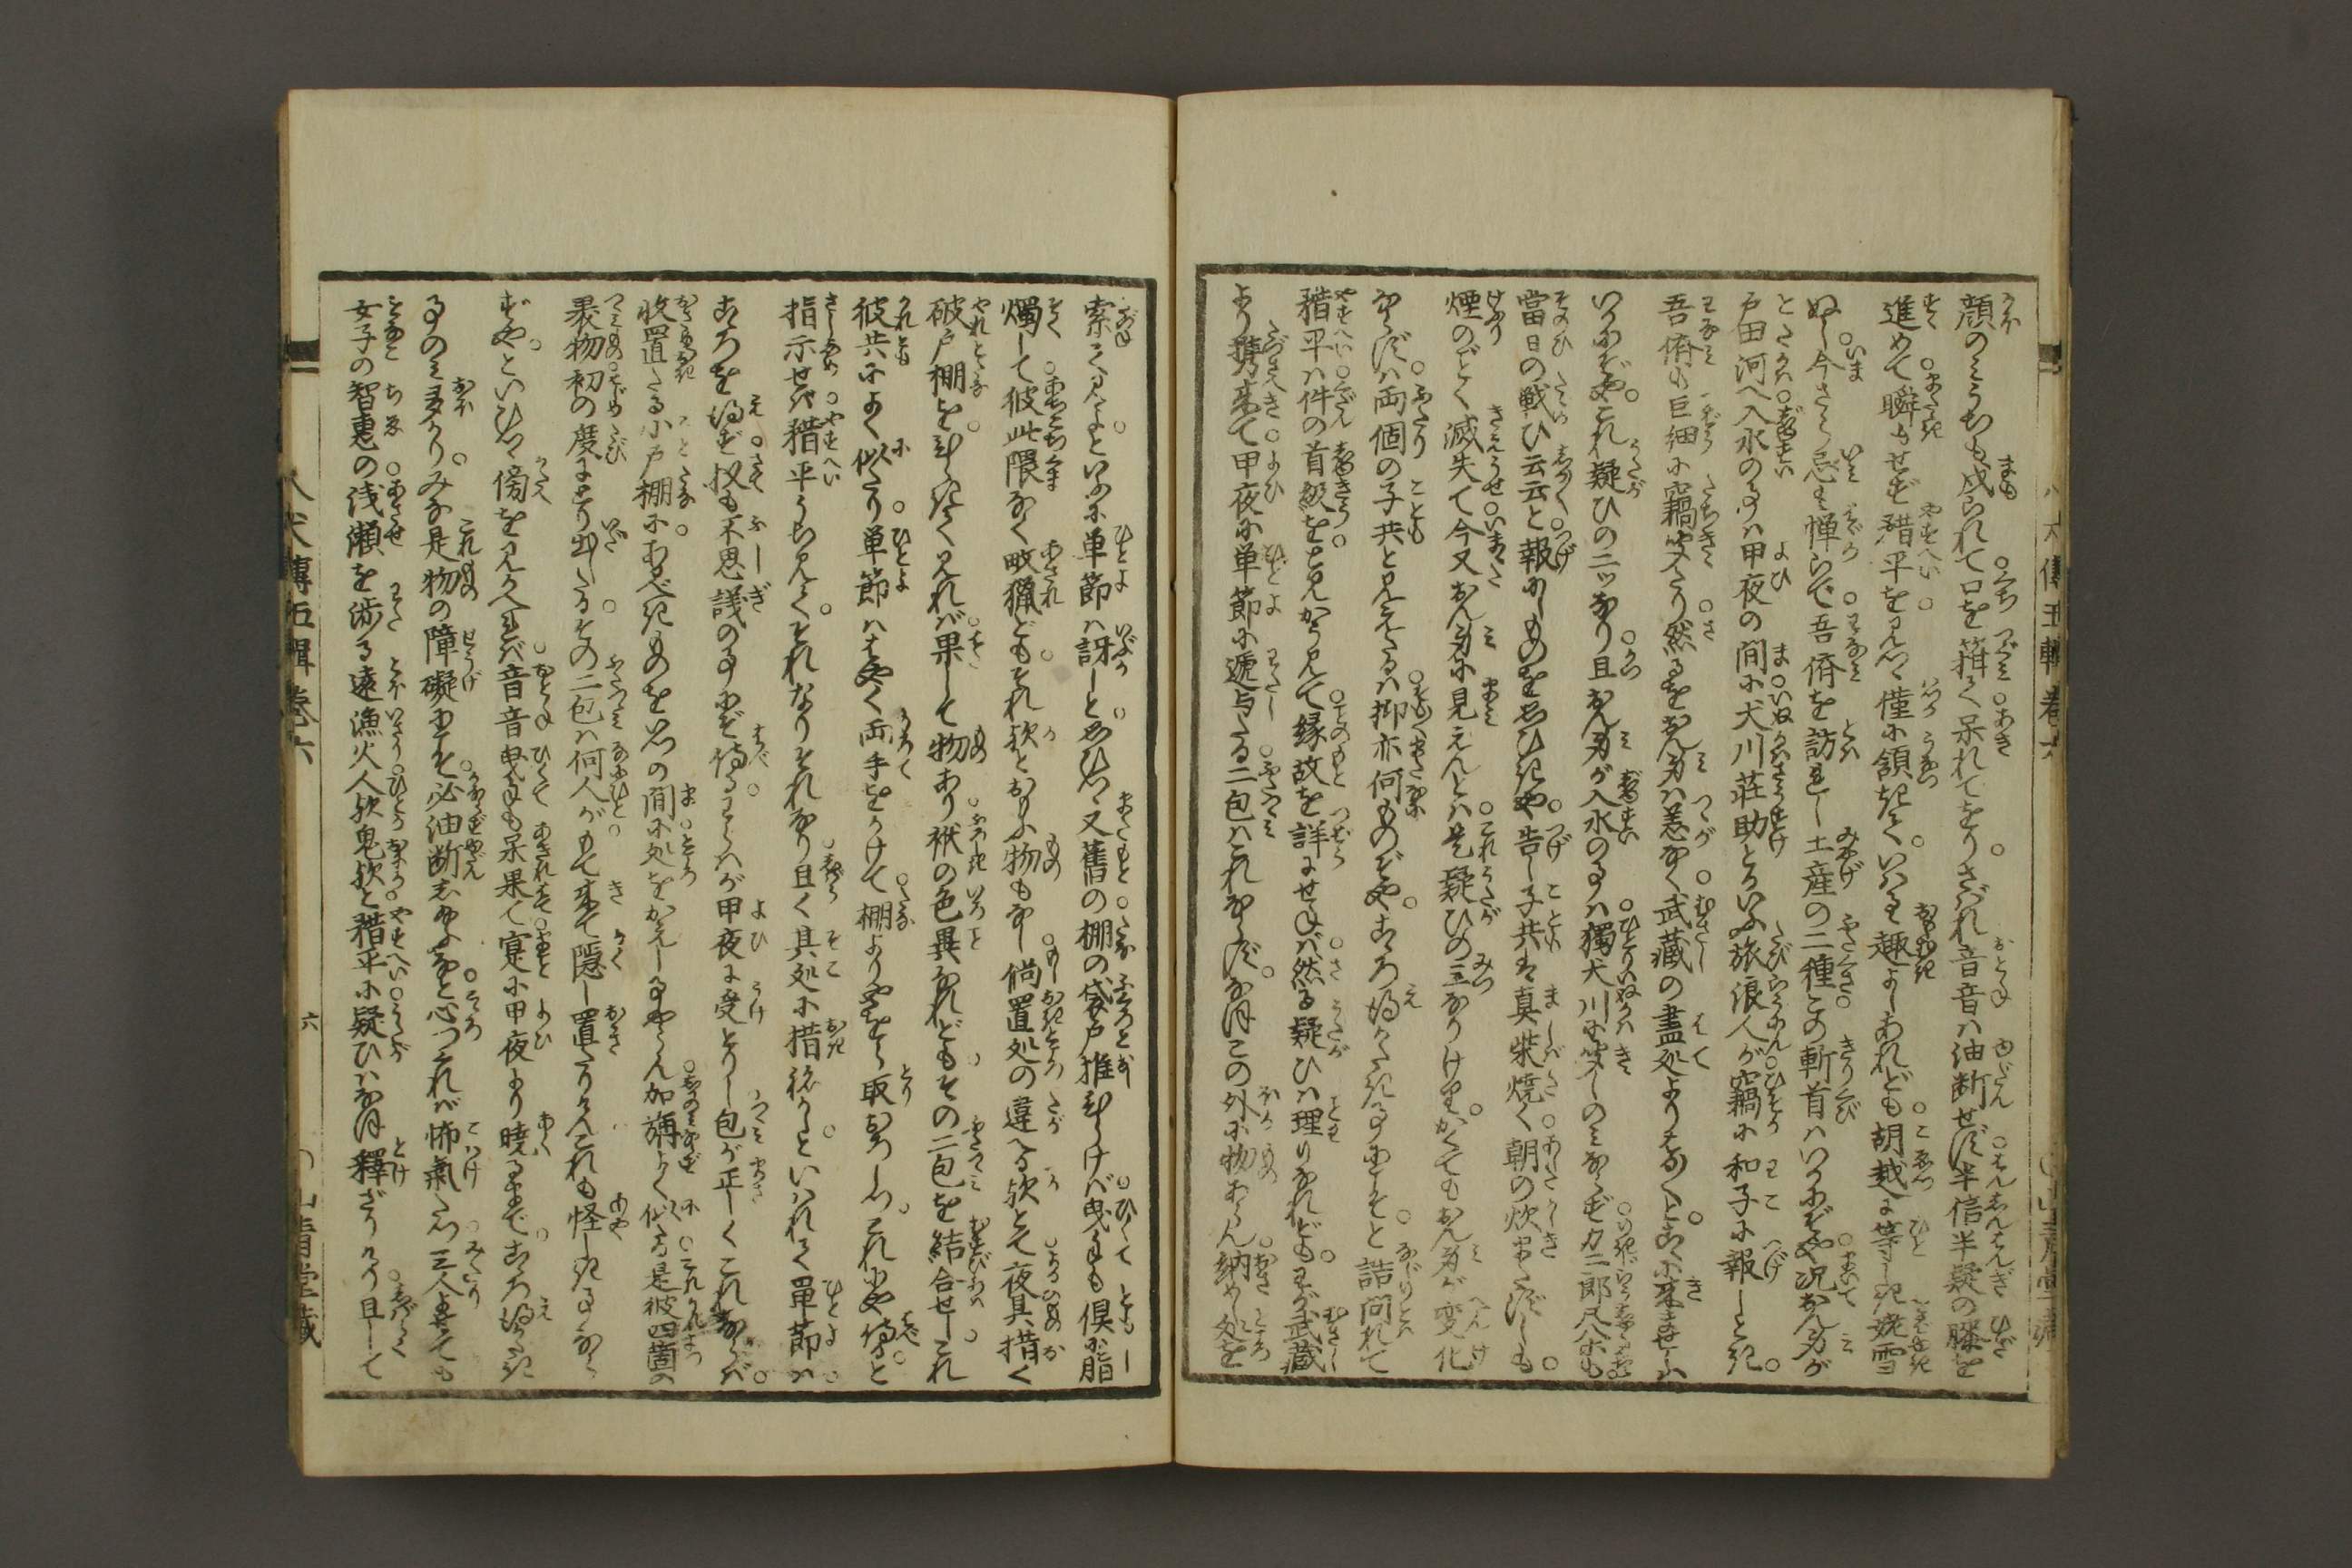 顔のみうちも戍られて口を箝て呆れてをり。されば音音ハ油断せず半信半疑の膝を
進めて瞬もせず䂺平を見つゝ僅に頷きて。いはるゝ趣よしあれども胡越に等しき姨雪
ぬし今さら忌も憚らで吾儕を訪れし土産の二種この斬首ハいかにぞや况おん身が
戸田河へ入水の事ハ甲夜の間に犬川莊助とかいふ旅浪人が竊に和子に報しとき。
吾儕も巨細に竊聞たり然るをおん身ハ恙なく武藏の盡処よりはる〲とこゝに来ませし
いかにぞや。これ疑ひの二ッなり且おん身が入水の事ハ獨犬川に聞しのみならず力二郎尺八等も
當日の戦ひ云云と報にしものを思ひきや。告し子共は真柴焼く朝の炊またずしも。
煙のごとく滅失て今又おん身に見えんとハ是疑ひの三なりけり。かくてもおん身が変化
ならずハ両個の子共と見えたるハ抑亦何ものぞや。こゝろ得かたき事にこそと詰問れて
䂺平ハ件の首級をと見かう見て縁故を詳にせざれば然る疑ひハ理りなれども。わが武藏
より携来て甲夜に単節に逓与たる二包ハこれならず。なほこの外に物あらん納めし処を
索て見よといふに単節ハ訝しと思ひつゝ又舊の棚の袋戸推ひらけば曳手も倶に脂
燭して彼此隈なく畋獵どもそれ欤とおもふ物もなし倘置処の違へる欤とて夜具措く
破戸棚をひらきて見れば果して物あり袱の色異なれどもその二包を結合せし。これ
彼共によく似たり。単節ハはやく両手をかけて棚よりやをら取おろしつ。これにや侍ると
指示せば䂺平うち見て。それなりそれなり且く其処に措ねかしといはれて單節ハ。
こゝろを得ず扠も不思議の事にぞ侍る。わらはが甲夜に受とりし包が正しくこれならば。
收置たる小戸棚にあるべきものをいつの間に処をかえしぞやらん加旃よく似たる是彼四箇の
裹物初の度にとり出たる。その二包ハ何人がもて来て隠し置たりけんこれも怪しき事なら
ずや。といひつゝ傍を見かへれば音音曳手も呆果て寔に甲夜より暁るまで。こゝろ得かたき
事のみ多かり。みな是物の障礙にこそ必油断し給ふなと心つくれば怖氣たつ三人よせても
女子の智惠の浅瀬を渉る遠漁火人欤鬼欤と䂺平に疑ひハなほ釋ざりけり且して
八犬傳五輯卷六
六
山青堂藏